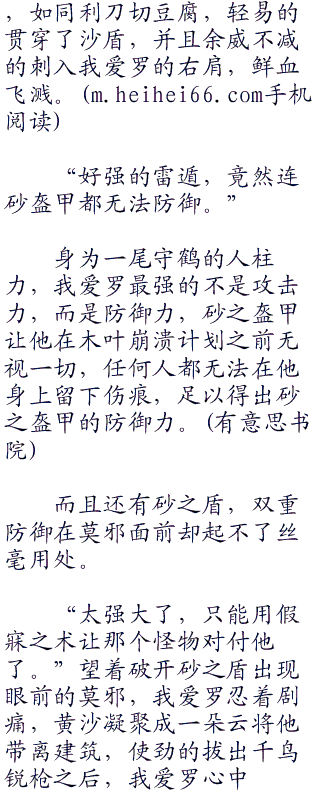 ，如同利刀切豆腐，轻易的
贯穿了沙盾，并且余威不减
的刺入我爱罗的右肩，鲜血
飞溅。(m.heihei66.com手机
阅读)
“好强的雷遁，竟然连
砂盔甲都无法防御。”
身为一尾守鹤的人柱
力，我爱罗最强的不是攻击
力，而是防御力，砂之盔甲
让他在木叶崩溃计划之前无
视一切，任何人都无法在他
身上留下伤痕，足以得出砂
之盔甲的防御力。(有意思书
院)
而且还有砂之盾，双重
防御在莫邪面前却起不了丝
毫用处。
“太强大了，只能用假
寐之术让那个怪物对付他
了。”望着破开砂之盾出现
眼前的莫邪，我爱罗忍着剧
痛，黄沙凝聚成一朵云将他
带离建筑，使劲的拔出千鸟
锐枪之后，我爱罗心中